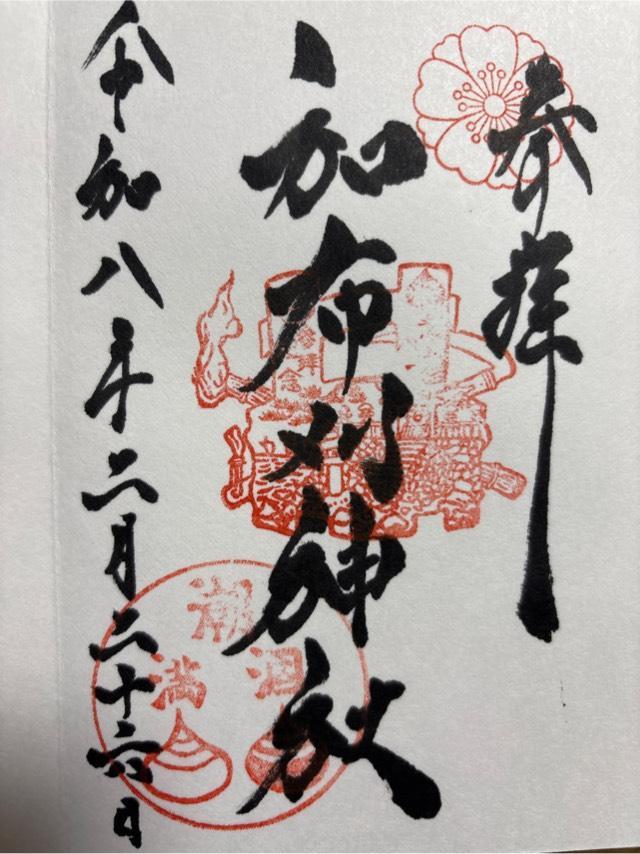 奉拝
和布刈神社
令和八年二月二十六日
潮
涸
満